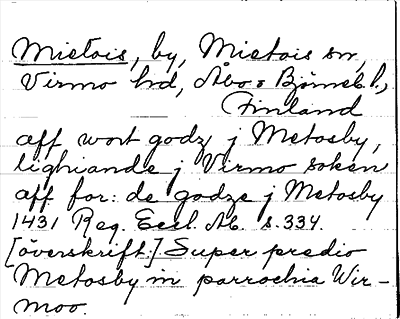 Mietois, by, Mietois sn,
Virmo hd, Åbo o Björneb. l.,
Finland
aff wort godz j Metosby,
lighiande j Virmo soken
aff for: de godze j Metosby
1431 Reg. Eccl. Ab. s. 334.
[överskrift:] Super predio
Metosby in parrochia Wir-
moo.